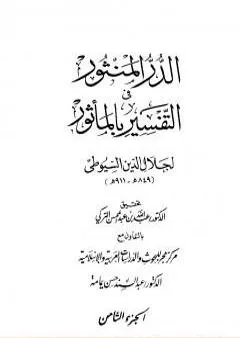 الدر المنثور
في
التفسير بالمأثور
لجلال الدين السيوطي
(٨٤٩ھ - ٩١١ھ)
تحقيق
الدكتور عبد الله بن عبد المحسن التركي
بالتعاون مع
مركز هجر للبحوث والدراسات العربية والإسلامية
الدكتور عبد السند حسن يمامة
الجزء الثامن